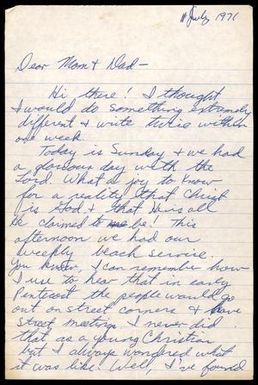 11 July 1971
Dear Mom & Dad –
Hi there! I thought
I would do something extremely
different & write twice within
one week.
Today is Sunday & we had
a glorious day with the
Lord. What a joy to know
for a reality that Christ
is God & that He is all
He claimed to be! This
afternoon we had our
weekly beach service.
You know, I can remember how
I use to hear that in early
Pentecost the people would go
out on street corners & have
street meetings. I never did
that as a young Christian
but I always wondered what
it was like. Well, I've found